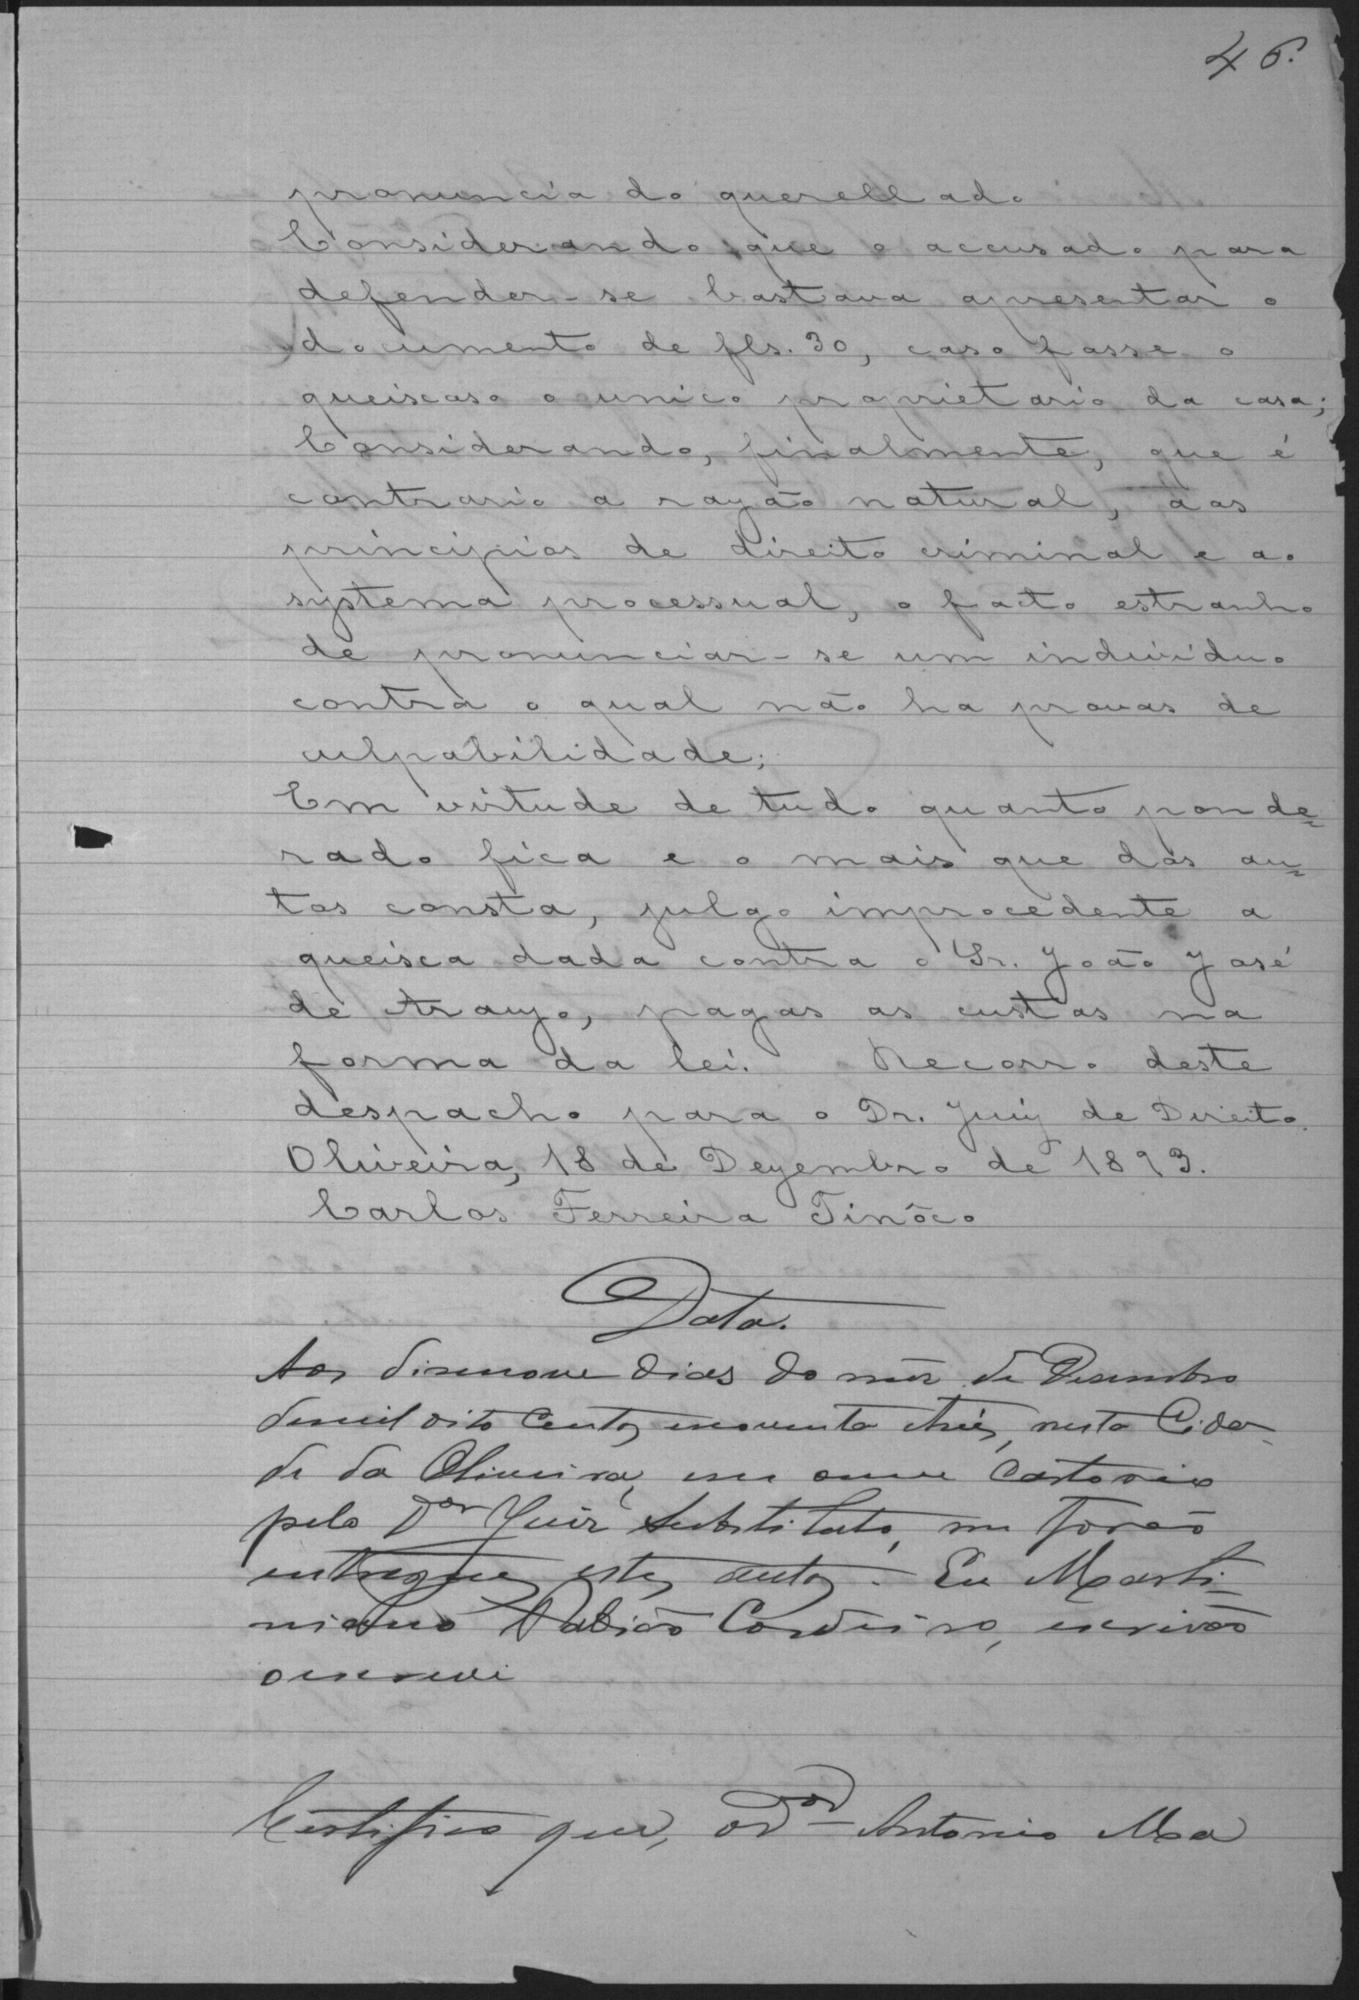 46.
pronuncia do querellado
Considerando que o accusado para
defender-se bastava apresentar o
documento de fls. 30, caso fosse o
queixoso o unico proprietario da casa;
Considerando, finalmente, que é
contrario a razão natural, aos
principios de direito criminal e ao
systema processual, o facto estranho
de pronunciar-se um individuo
contra o qual não ha provas de
culpabilidade;
Em virtude de tudo quanto ponde=
rado fica e o mais que dos au=
tos consta, julgo improcedente a
queixa dada contra o Sr. João José
de Araujo, pagas as custas na
forma da lei. Recorro deste
despacho para o Dr. Juiz de Direito.
Oliveira, 18 de Dezembro de 1893.
Carlos Ferreira Tinôco
Data.
Aos disenove dias do mez de Desembro
demil oito centos enoventa etrês, nesta Cida-
de da Oliveira, em cartorio
pelo Dor Juiz Substituto, me forão
entregues estes autos. Eu Marti-
niano Cordeiro, escrivão
oescrevi
Certifico que, oDor Antonio Ma